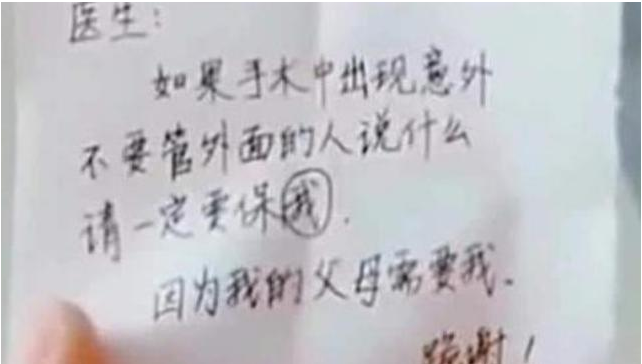 医生:
如果手术中出现意外
不要管外面的人说什么
请一定要保我.
因为我的父母需要我.
跪谢!